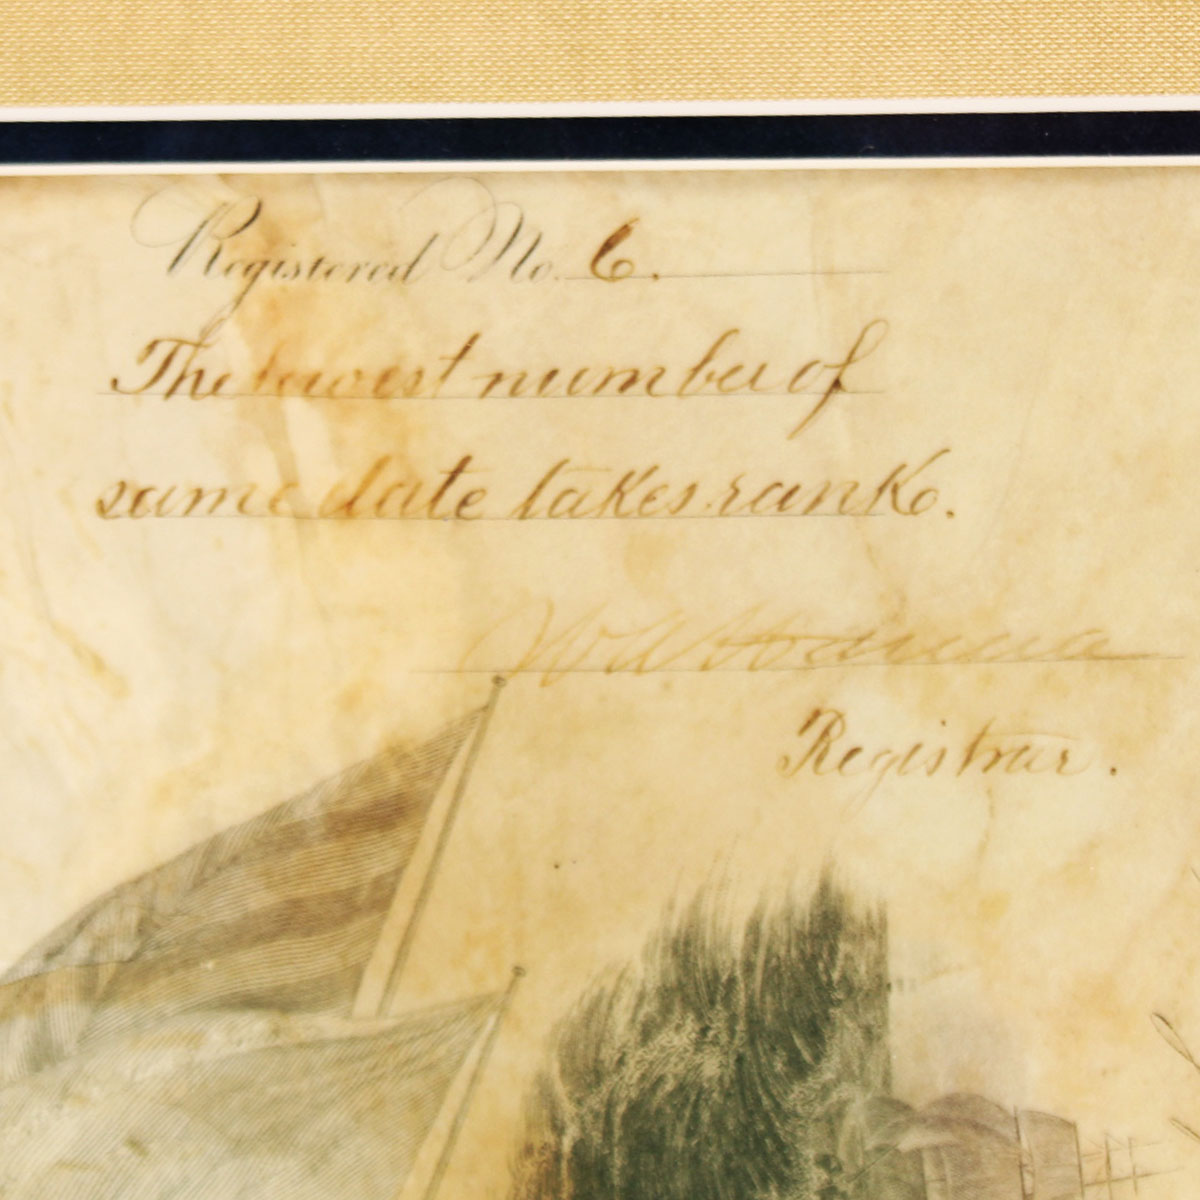 Registered No. 6.
The lowest number of
same date takes rank.
Hanna
Registrar.